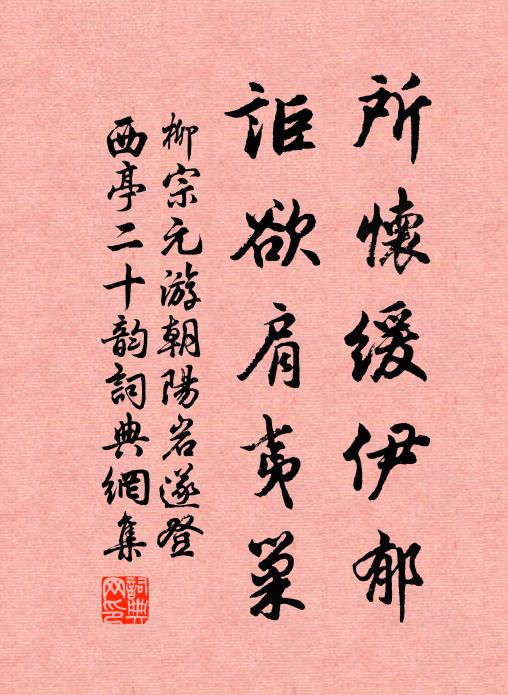 所懷緩伊郁
詎欲肩夷巢
柳宗元游朝陽岩遂登
西亭二十韵詞典網集
詞典网印